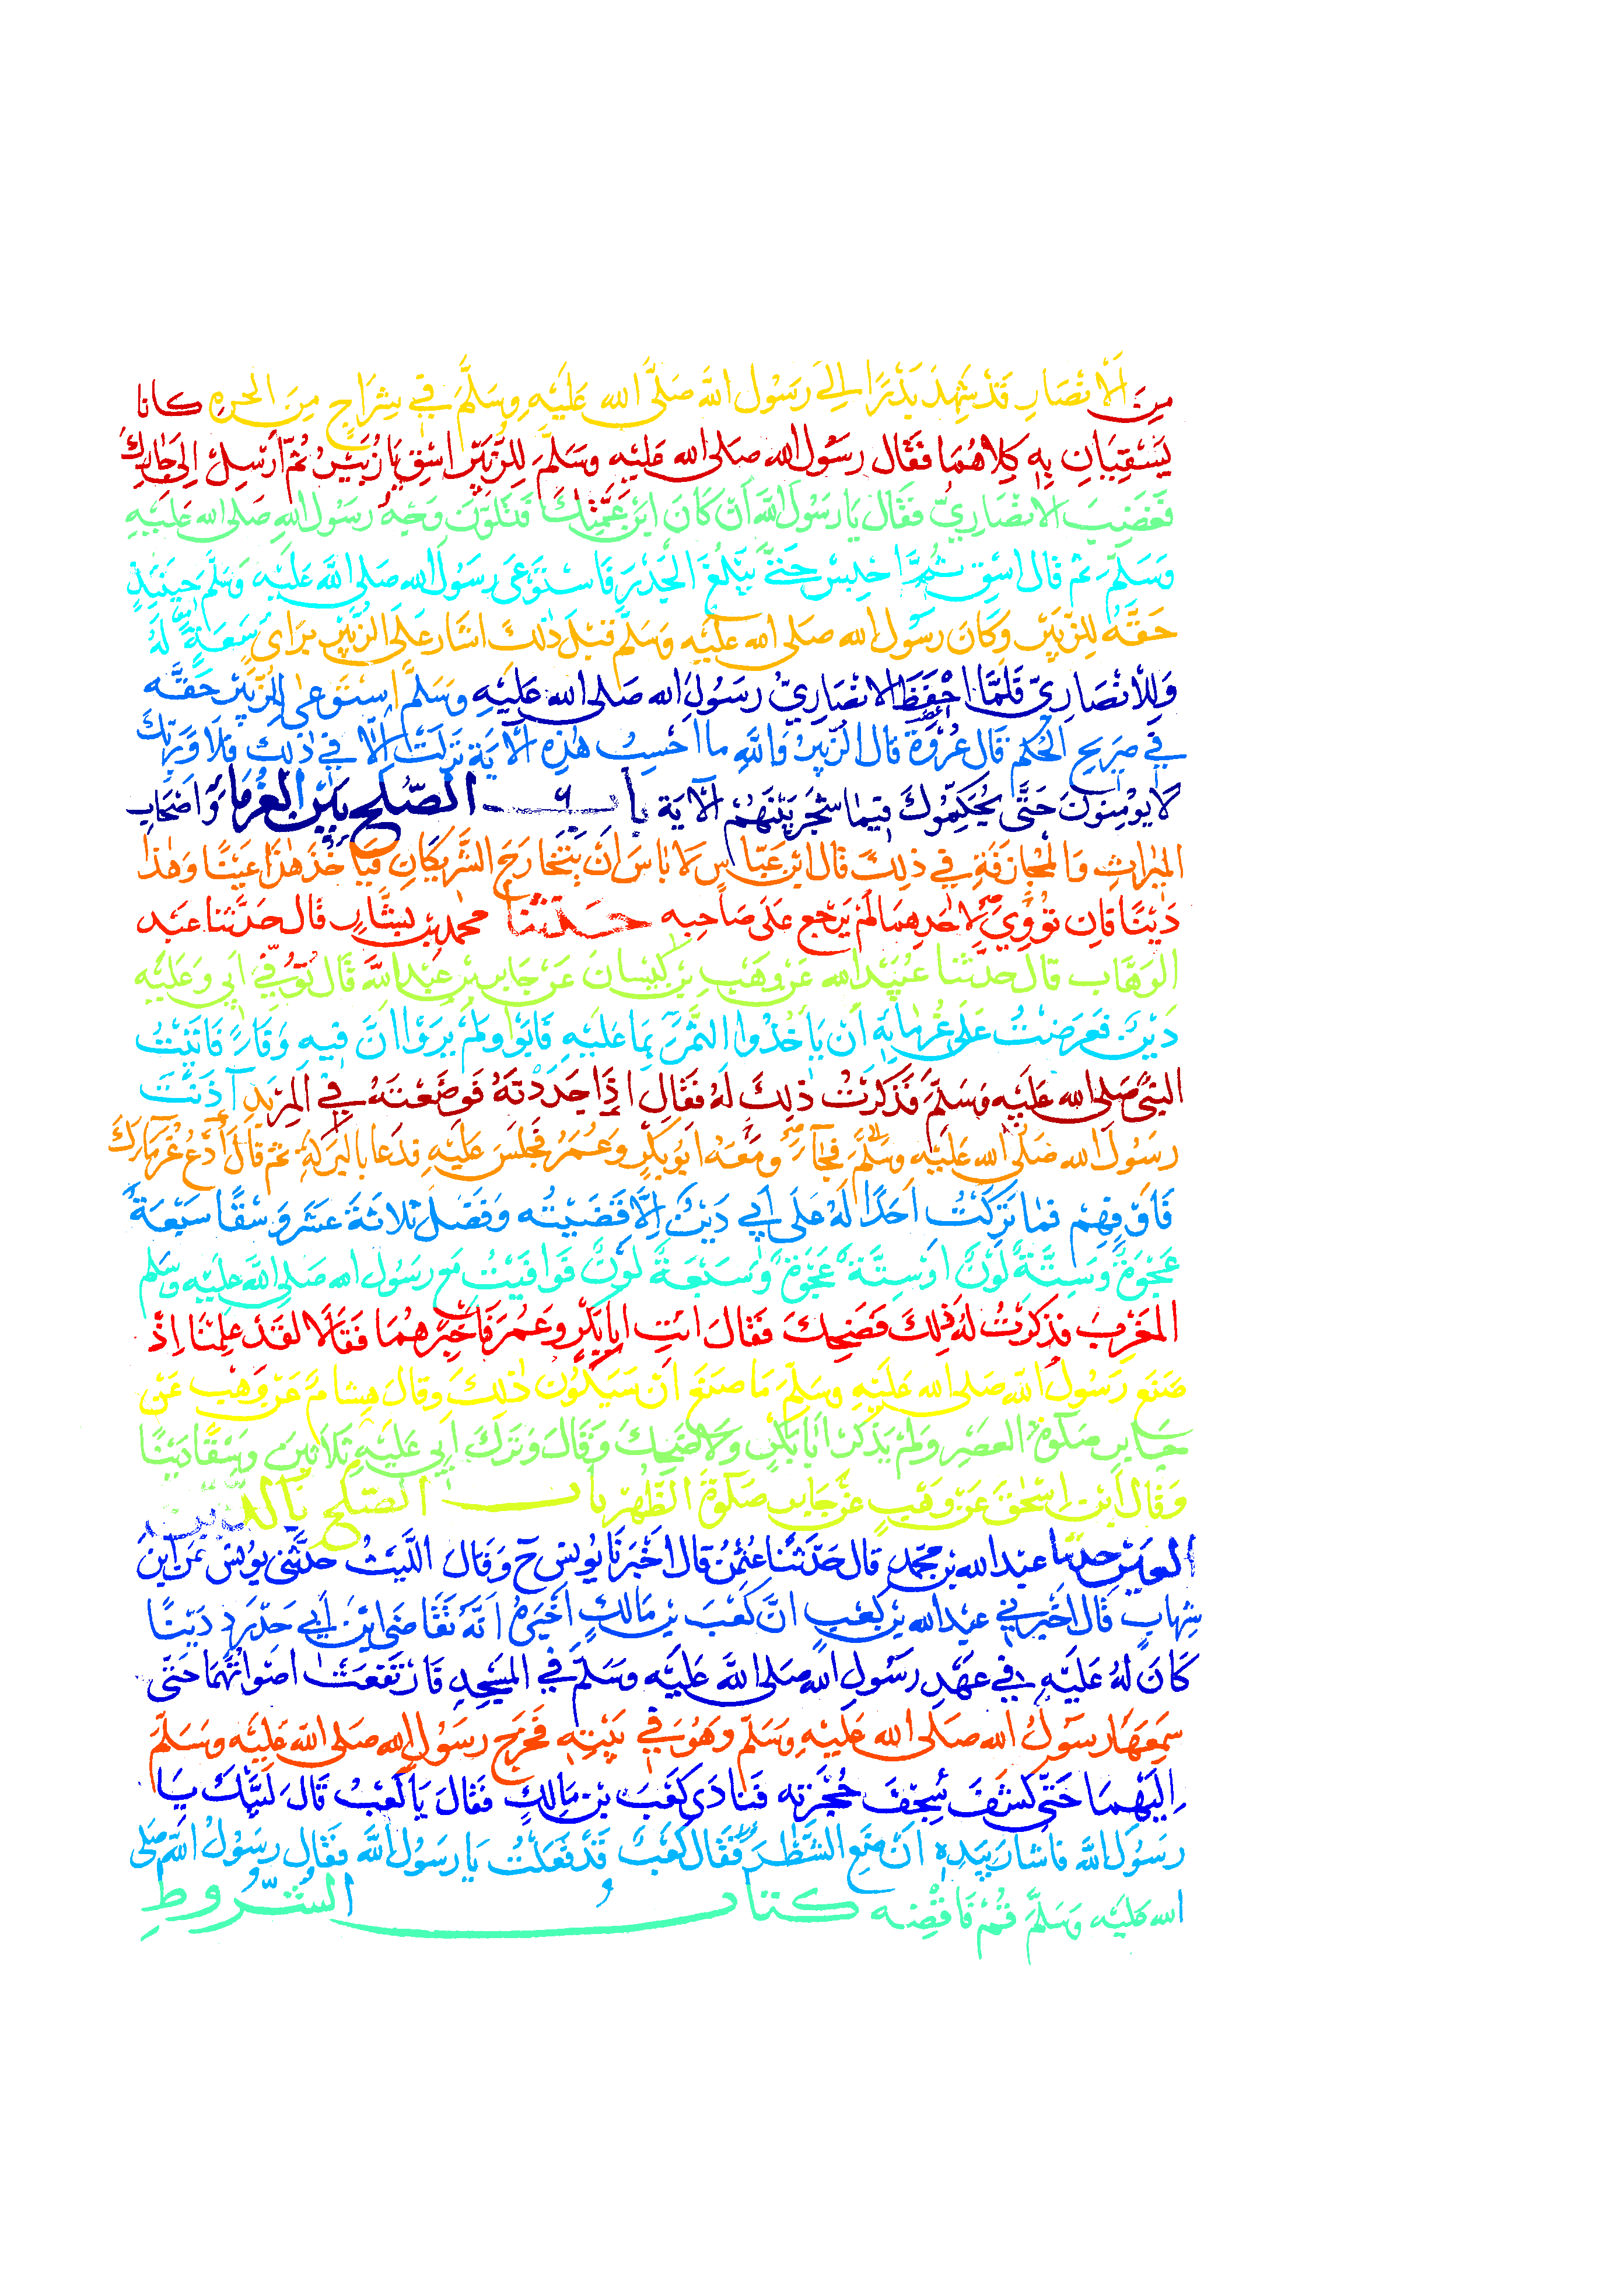 مِنَ الْانْصَارِ قَدْ شَهِدَ بَدْرًا الِىَ رَسُوْل اللهَ صَلَّى الله عَلَيْهِ وَسَلَّمَ فِي شِرَاجٍ مِنَ الحره كانا
يَسْقِيَانِ بِهٖ كِلاهُمَا فَقَال رسُوْل الله صلى الله عليه وسَلَّمَ لِلزُّبَيْرِ اسْقِ يَا زُبَيْرُ ثمّ اَرْسِلْ اِلىٰ جَارِكَ
فَغَضِبَ الانصَارِيُّ فقَال يَا رَسُوْلَ اللهَ اَنْ كَانَ ابْنَ عَمَّتِكَ فَتَلَوَّنَ وَجْهُ رَسُوْل اللهِ صَلى الله عَلَيْهِ
وَسَلمَّ ثم قال اسْقِ ثُمَّ احْبِسْ حَتىَّ يَبْلُغَ الْجَدْرَ فَاسْتَوْعَى رسُوْلُ الله صَلى اللهَ عَلَيْهِ وَسَلَّمَ حِيْنَئِذٍ
حَقَّهُ لِلزُّبَيْرِ وكَانَ رسُوْل الله صلى الله عَلَيْهِ وَسَلَّم قَبْلَ ذٰلكَ اشَار عَلَى الزُّبَيْرِ بِرَاىٍ سَعَةٍ لَهُ
وَلِلْانْصَارِىِّ فَلَمَّا احْفَظَ الانْصَارِيُّ رسَوُلَ الله صَلى الله عَلَيْهِ وَسَلَّم اسْتَوْعىٰ لِلزُّبَيْرِ حَقَّه
فِي صَرِيحِ الْحُكْمِ قَال عُرْوَةُ قال الزُّبَيْرُ وَاللّهِ ما احْسِبُ هٰذِهِ الْايَة نزَلَتْ اِلَّا فِي ذٰلِكَ فَلَا وَرَبِّكَ
لَا يُوْمِنُوْنَ حَتَّى يُحَكِّمُوْكَ فِيْمَا شَجَرَ بَيْنَهُمْ الْايَة بابُ الصُّلْحِ بَيْنَ الْغُرَمَاءِ وَاَصْحَابِ
المِيْرَاثِ وَالْمُجَازَفَةِ فِي ذلِكَ قال ابْن عَبَّاسٍ لَا بَاسَ انْ يَتَخَارَجَ الشَّرِيْكَانِ فَيَاْخُذَ هٰذَا عَيْنًا وَهٰذا
دَيْنًا فَاِن تَوِيَ لِاَحَدِهِمَا لَمْ يَرْجِع عَلَى صَاحِبِه حدثنا محمد بن بشَّارٍ قال حَدّثَنا عَبْد
الوَهَّاب قال حدَّثَنا عُبَيْد الله عَنْ وهَب بْنِ كَيْسَانَ عَنْ جَابِر بن عَبْد اللهَ قَال تُوُفِّيَ اَبِي وَعَلَيْهِ
دَيْنٌ فَعَرَضْتُ عَلَى غُرَمَائِهِ اَنْ يَاخُذُوا التَّمْرَ بِمَا عَلَيْهِ فَابَوْا وَلَمْ يَرَوْا انَّ فِيهِ وَفَاءً فَاتَيْتُ
النبيَّ صَلى الله عَلَيْهِ وَسَلَّمَ فَذَكَرْتُ ذلِكَ لَهُ فَقَال اِذَا جَدَدْتَهُ فَوَضَعْتَهُ فِي المِرْبَدِ آذَنْتَ
رسُوْلَ الله صَلَّى الله عَلَيْهِ وسَلَّمَ فَجَاءَ ومَعَهُ ابُوْ بَكْرٍ وَعُمَرُ فَجَلَسَ عَلَيْهِ فدَعَا بالبَرَكَةِ ثم قَالَ ادْعُ غُرَمَاءَكَ
فَاَوْفِهِمْ فَمَا تَرَكْتُ احَدًا لَهُ عَلَى اَبِي دَيْنٌ اِلَّا قَضَيْتُه وَفَضَلَ ثَلاثةَ عَشَرَ وَسْقًا سَبْعَةٌ
عَجْوَةٌ وَسِتَّةٌ لَوْنٌ اوْ سِتَّةٌ عَجْوَةٌ وَسَبْعَةٌ لَوْنٌ فَوَافَيْتُ مَع رَسُوْل الله صَلى اللهَ عليه وسلم
المَغْرِبَ فذَكَرْتُ لهُ ذلِكَ فَضَحِكَ فَقَالَ ائْتِ ابَا بَكْرٍ وعُمَرَ فَاَخْبِرْهُمَا فَقَالَا لقَدْ عَلِمْنَا اِذْ
صَنَعَ رَسُوْلُ الله صَلى الله عَلَيْهِ وسَلَّمَ مَا صَنَعَ انْ سَيَكُوْن ذٰلِكَ وقالَ هِشامٌ عَنْ وَهْبٍ عَنْ
جَابِرٍ صَلٰوةَ العصْرِ وَلَمْ يَذْكُرْ ابَا بَكْرٍ وَلَا ضَحِكَ وَقَالَ وَتَرَكَ اَبِي عَلَيْهِ ثَلاثِينَ وَسْقًا دَيْنًا
وَقَال ابْن اِسْحٰقَ عَنْ وهْبٍ عَنْ جَابِر صَلٰوةَ الظُّهْرِ باب الصُّلح بالدَّين
والعين حدثنا عبْد الله بن محَمّد قال حَدّثَنا عُثْمٰنُ قال اخْبَرَنَا يُوْنسُ ح وَقال اللَّيْثُ حدَّثَنى يُوْنسُ عَن ابْنِ
شِهَابٍ قَال اخْبرَنِي عبْد الله بن كعْبٍ انَّ كَعْبَ بن مَالكٍ اَخْبَرَهُ اَنَّه تَقَاضَى ابْنَ اَبِي حَدْرَدٍ دَيْنًا
كَانَ لَهُ عَلَيْهِ فِي عهْدِ رسُوْلِ اللهِ صَلى اللهَ عَلَيْه وسَلَّمَ فِي المسْجِدِ فَارْتَفَعَتْ اصْوَاتُهُمَا حَتّى
سَمِعَهَا رسُوْلُ الله صَلَى الله عَلَيْهِ وسَلّم وهُوَ فِي بَيْتِهٖ فَخَرَجَ رسُوْل الله صَلى الله عَلَيْه وسَلَّمَ
اِلَيْهِمَا حَتّى كَشَفَ سِجْفَ حُجْرَتِه فَنَادَى كَعْبَ بْن مَالِكٍ فَقَالَ يَا كَعْبُ قَالَ لَبَّيْكَ يَا
رسُوْلَ اللهَ فاشَارَ بِيَدِهٖ انْ ضَعِ الشَّطْرَ فَقَال كَعْبٌ قَدْ فَعَلْتُ يَا رسُوْل اللهَ فَقَال رسُوْلُ اللهِ صلى
الله عليْه وَسَلَّمَ قُمْ فَاقْضِه كتابُ الشُّرُوطِ